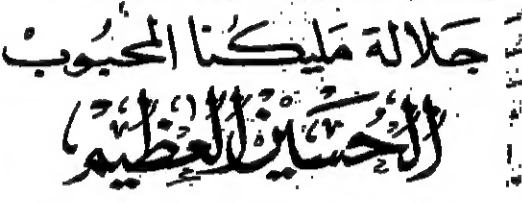 جلالة مَليكُنا المحبُوبْ
الحُسَين العظيم